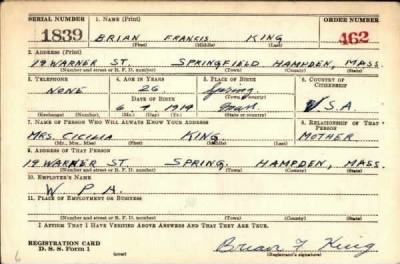 SERIAL NUMBER 1. NAME (Print) ORDER NUMBER
1839 BRIAN FRANCIS KING 462
(First) (Middle) (Last)
2. ADDRESS (Print)
19 WARNER ST. SPRINGFIELD HAMPDEN, MASS.
(Number and street or R. F. D. number) (Town) (County) (State)
3. TELEPHONE 4. AGE IN YEARS 5. PLACE OF BIRTH 6. COUNTRY OF CITIZENSHIP
NONE 26 Spring. U.S.A.
DATE OF BIRTH (Town or county)
6 1914 Mass.
(Exchange) (Number) (Mo.) (Day) (Yr.) (State or country)
7. NAME OF PERSON WHO WILL ALWAYS KNOW YOUR ADDRESS 8. RELATIONSHIP OF THAT PERSON
MRS. CICILIA KING MOTHER
(Mr., Mrs., Miss) (First) (Middle) (Last)
9. ADDRESS OF THAT PERSON
19 WARNER ST. SPRING. HAMPDEN, MASS.
(Number and street or R. F. D. number) (Town) (County) (State)
10. EMPLOYER'S NAME
W. P. A.
11. PLACE OF EMPLOYMENT OR BUSINESS
(Number and street or R. F. D. number) (Town) (County) (State)
I AFFIRM THAT I HAVE VERIFIED ABOVE ANSWERS AND THAT THEY ARE TRUE.
REGISTRATION CARD
D. S. S. Form 1
Brian F King
(Registrant's signature)
6